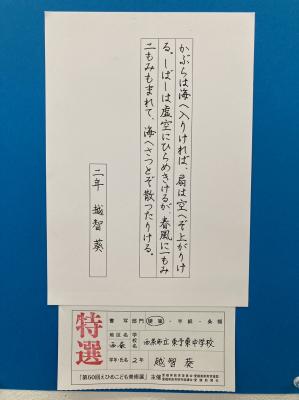 かぶらは海へ入りければ、扇は空へぞ上がりけ
る。しばしは虚空にひらめきけるが、春風に一もみ
二もみもまれて、海へさつとぞ散つたりける。
二年 越智 葵
特選
書写部門 硬筆・半紙・条幅
地区名 西条
学校名 西条市立東予東中学校
学年・氏名 2年 越智葵
「第50回えひめこども美術展」主催